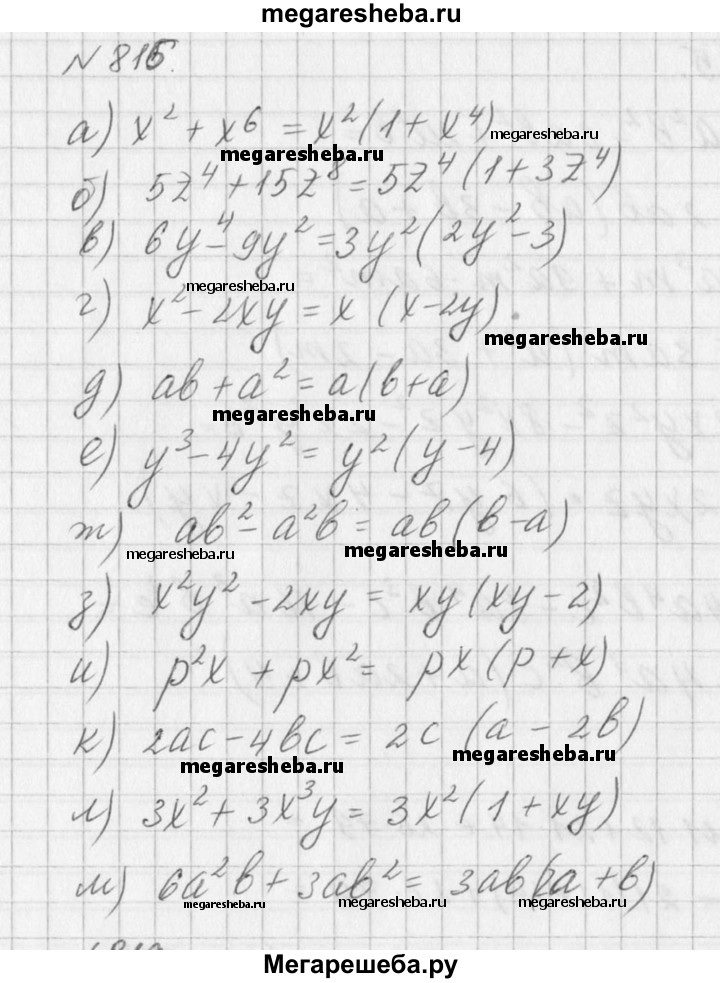 megaresheba.ru
№ 815.
а) x² + x⁶ = x²(1 + x⁴)
megaresheba.ru
megaresheba.ru
б) 5z⁴ + 15z⁸ = 5z⁴(1 + 3z⁴)
в) 6y⁴ - 9y² = 3y²(2y² - 3)
megaresheba.ru
г) x² - 2xy = x (x - 2y)
megaresheba.ru
д) ab + a² = a(b + a)
megaresheba.ru
е) y³ - 4y² = y²(y - 4)
ж) ab² - a²b = ab(b - a)
megaresheba.ru
megaresheba.ru
з) x²y² - 2xy = xy(xy - 2)
и) p²x + px² = px(p + x)
к) 2ac - 4bc = 2c (a - 2b)
megaresheba.ru
megaresheba.ru
л) 3x² + 3x³y = 3x²(1 + xy)
м) 6a²b + 3ab² = 3ab(2a + b)
megaresheba.ru
megaresheba.ru
megaresheba.ru
Мегарешеба.ру